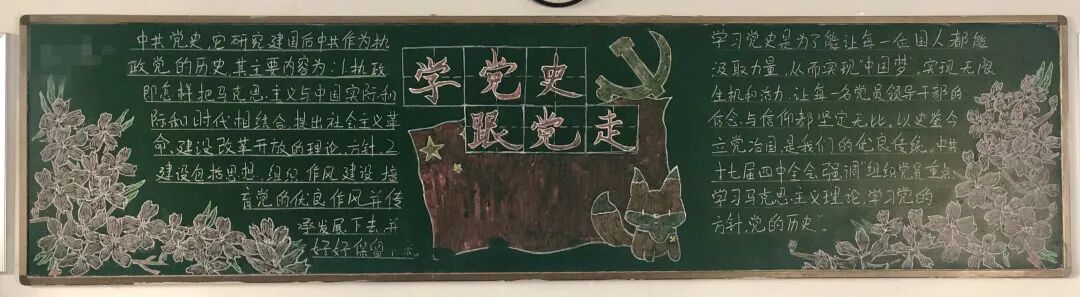 中共党史,它研究建国后中共作为执
政党的历史,其主要内容为:1.执政
即怎样把马克思主义与中国实际和
际和时代相结合,提出社会主义革
命,建设改革开放的理论,方针,2
建设包括思想、组织、作风建设,培
育党的优良作风并传
承发展下去,并
好好保留
学党史
跟党走
学习党史是为了能让每一位国人都能
汲取力量,从而实现"中国梦",实现无限
生机和活力,让每一名党员领导干部的
信念与信仰都坚定无比,以史鉴今
立党治国是我们的优良传统。中共
十七届四中全会,强调"组织党员重点
学习马克思主义理论,学习党的
方针,党的历史"。